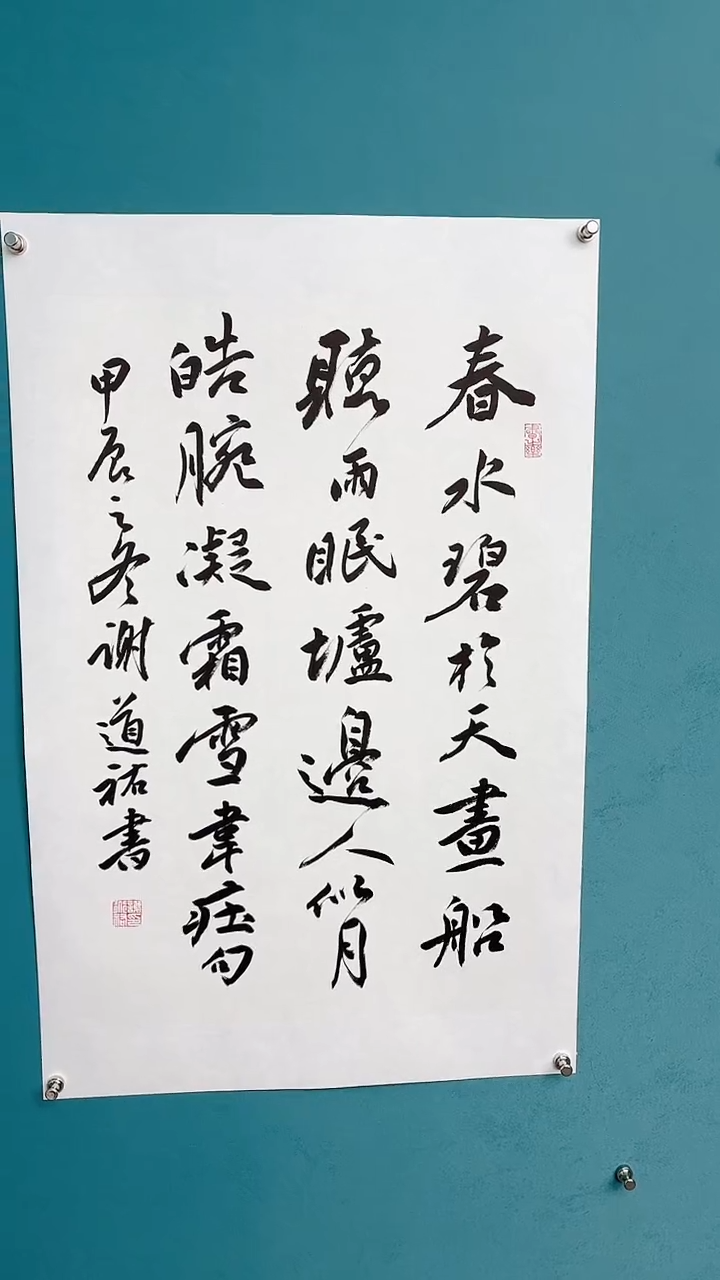 春水碧於天畫船
聽雨眠壚邊人似月
皓腕凝霜雪韋莊句
甲辰之冬谢道祐書